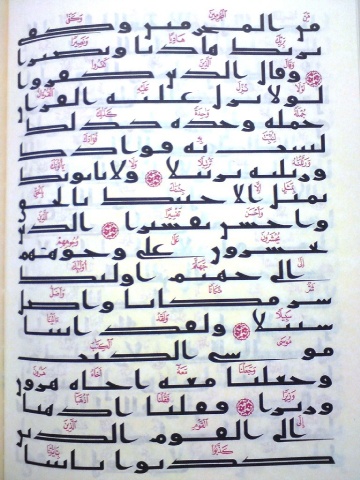 من المجرمين وكفى
بربك هاديا ونصيرا
وقال الذين كفروا
لولا نزل عليه القران
جمله وحده كذلك
لنثبت به فوادك
ورتلنه ترتيلا ولا ياتونك
بمثل الا جينك بالحق
واحسن تفسيرا الذين
يحشرون على وجوههم
الى جهنم اوليك
شر مكانا واضل
سبيلا ولقد اتينا
موسى الكتب
وجعلنا معه اخاه هرون
وزيرا فقلنا اذهبا
الى القوم الذين
كذبوا باياتنا